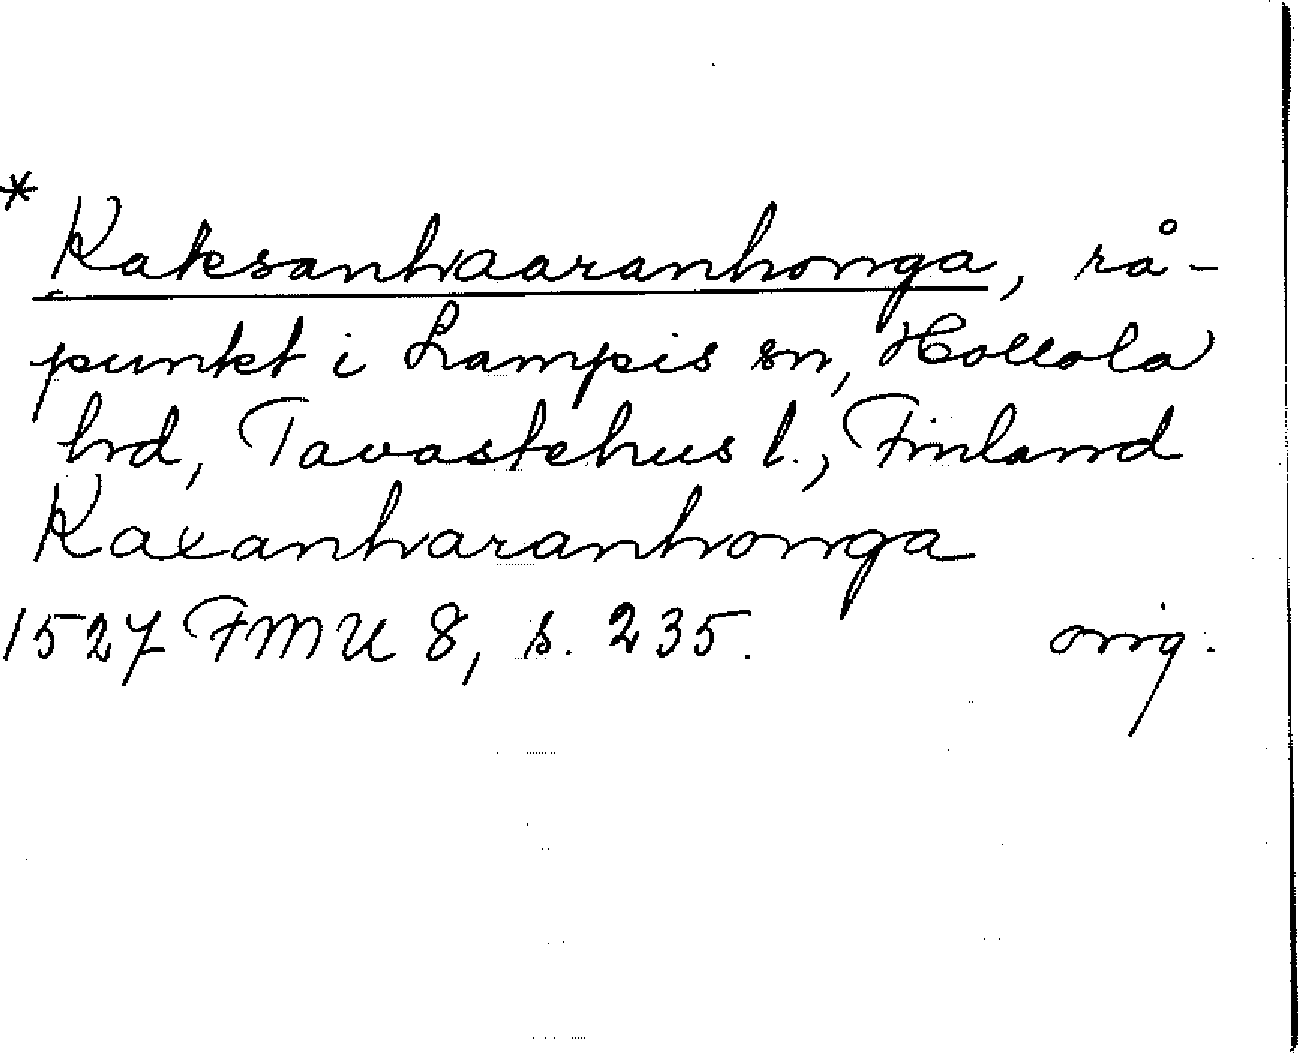 * Kaksanhaaranhonga, rå-
punkt i Lampis sn, Hollola
hrd, Tavastehus l., Finland
Kaxanharanhonga
1527 FMU 8, s. 235. orig.